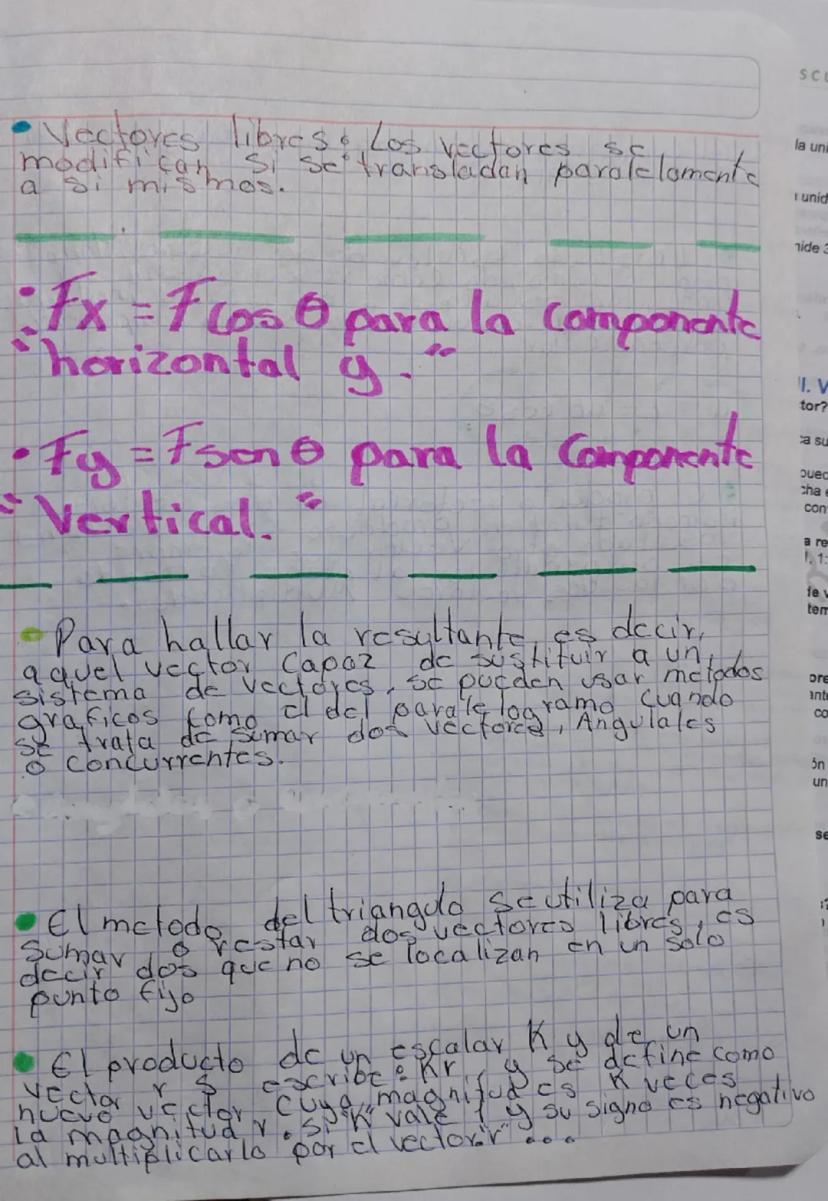 • Vectores libres: Los vectores se
modifican si se transladan paralelamente
a si mismos.
• Fx = F cos θ para la componente
"horizontal y."
• Fy = F sen θ para la Componente
"Vertical."
• Para hallar la resultante, es decir,
aquel vector capaz de sustituir a un
sistema de vectores, se pueden usar metodos
graficos como el del paralelogramo cuando
se trata de sumar dos vectores, Angulales
o concurrentes.
• El metodo del triangulo se utiliza para
sumar o restar dos vectores libres, es
decir dos que no se localizan en un solo
punto fijo
• El producto de un escalar K y de un
vector r s escribe: Kr y se define como
nuevo vector cuya magnitud es K veces
la magnitud r. si "K" vale 1 y su signo es negativo
al multiplicarlo por el vector "r" ...
scu
la uni
unid
ide 3
I. V
tor?
a su
pued
cha e
con
a re
1:
te v
tem
ore
inte
co
ón
un
se